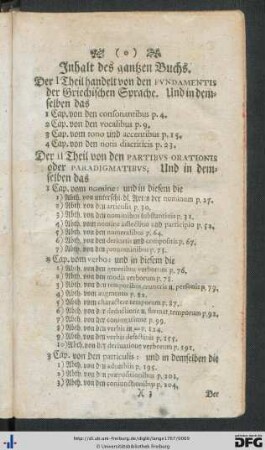 ( o )
Inhalt des gantzen Buchs.
Der I Theil handelt von den FVNDAMENTIS
der Griechischen Sprache. Und in dem-
selben das
1 Cap. von den consonantibus p. 4.
2 Cap. von den vocalibus p. 9.
3 Cap. vom tono und accentibus p. 15.
4 Cap. von den notis diacriticis p. 23.
Der II Theil von den PARTIBVS ORATIONIS
oder PARADIGMATIBVS, Und in dem-
selben das
1 Cap. vom nomine: und in diesem die
1) Abth. von unterschi. den nominum p. 27.
2) Abth. von den articulis p. 30.
3) Abth. von den nominibus substantivis p. 31.
4) Abth. von nomine adjectivo und participio p. 52,
5) Abth. von den numeralibus p. 64.
6) Abth. von den derivatis und compositis p. 67.
7) Abth. von den pronominibus p. 73.
2 Cap. vom verbo: und in diesem die
1) Abth. von den generibus verborum p. 76.
2) Abth. von den modis verborum p. 78.
3) Abth. von den temporibus, numeris u. personis p. 79.
4) Abth. vom augmento p. 82.
5) Abth. vom charactere temporum p. 87.
6) Abth. von der temporum p. 92.
7) Abth. von der conjugatione p. 99.
8) Abth. von den verbis in p. 124.
9) Abth. von den verbis defectivis p. 155.
10) Abth. von der derivatione verborum p. 191.
3 Cap. von den particulis: und in demselben die
1) Abth. von den adverbiis p. 195.
2) Abth. von den praepositionibus p. 201.
3) Abth. von den conjunctionibus p. 204,
X 3 Der
http://dl.ub.uni-freiburg.de/diglit/lange1707/0009
© Universitätsbibliothek Freiburg
UB FR
DFG